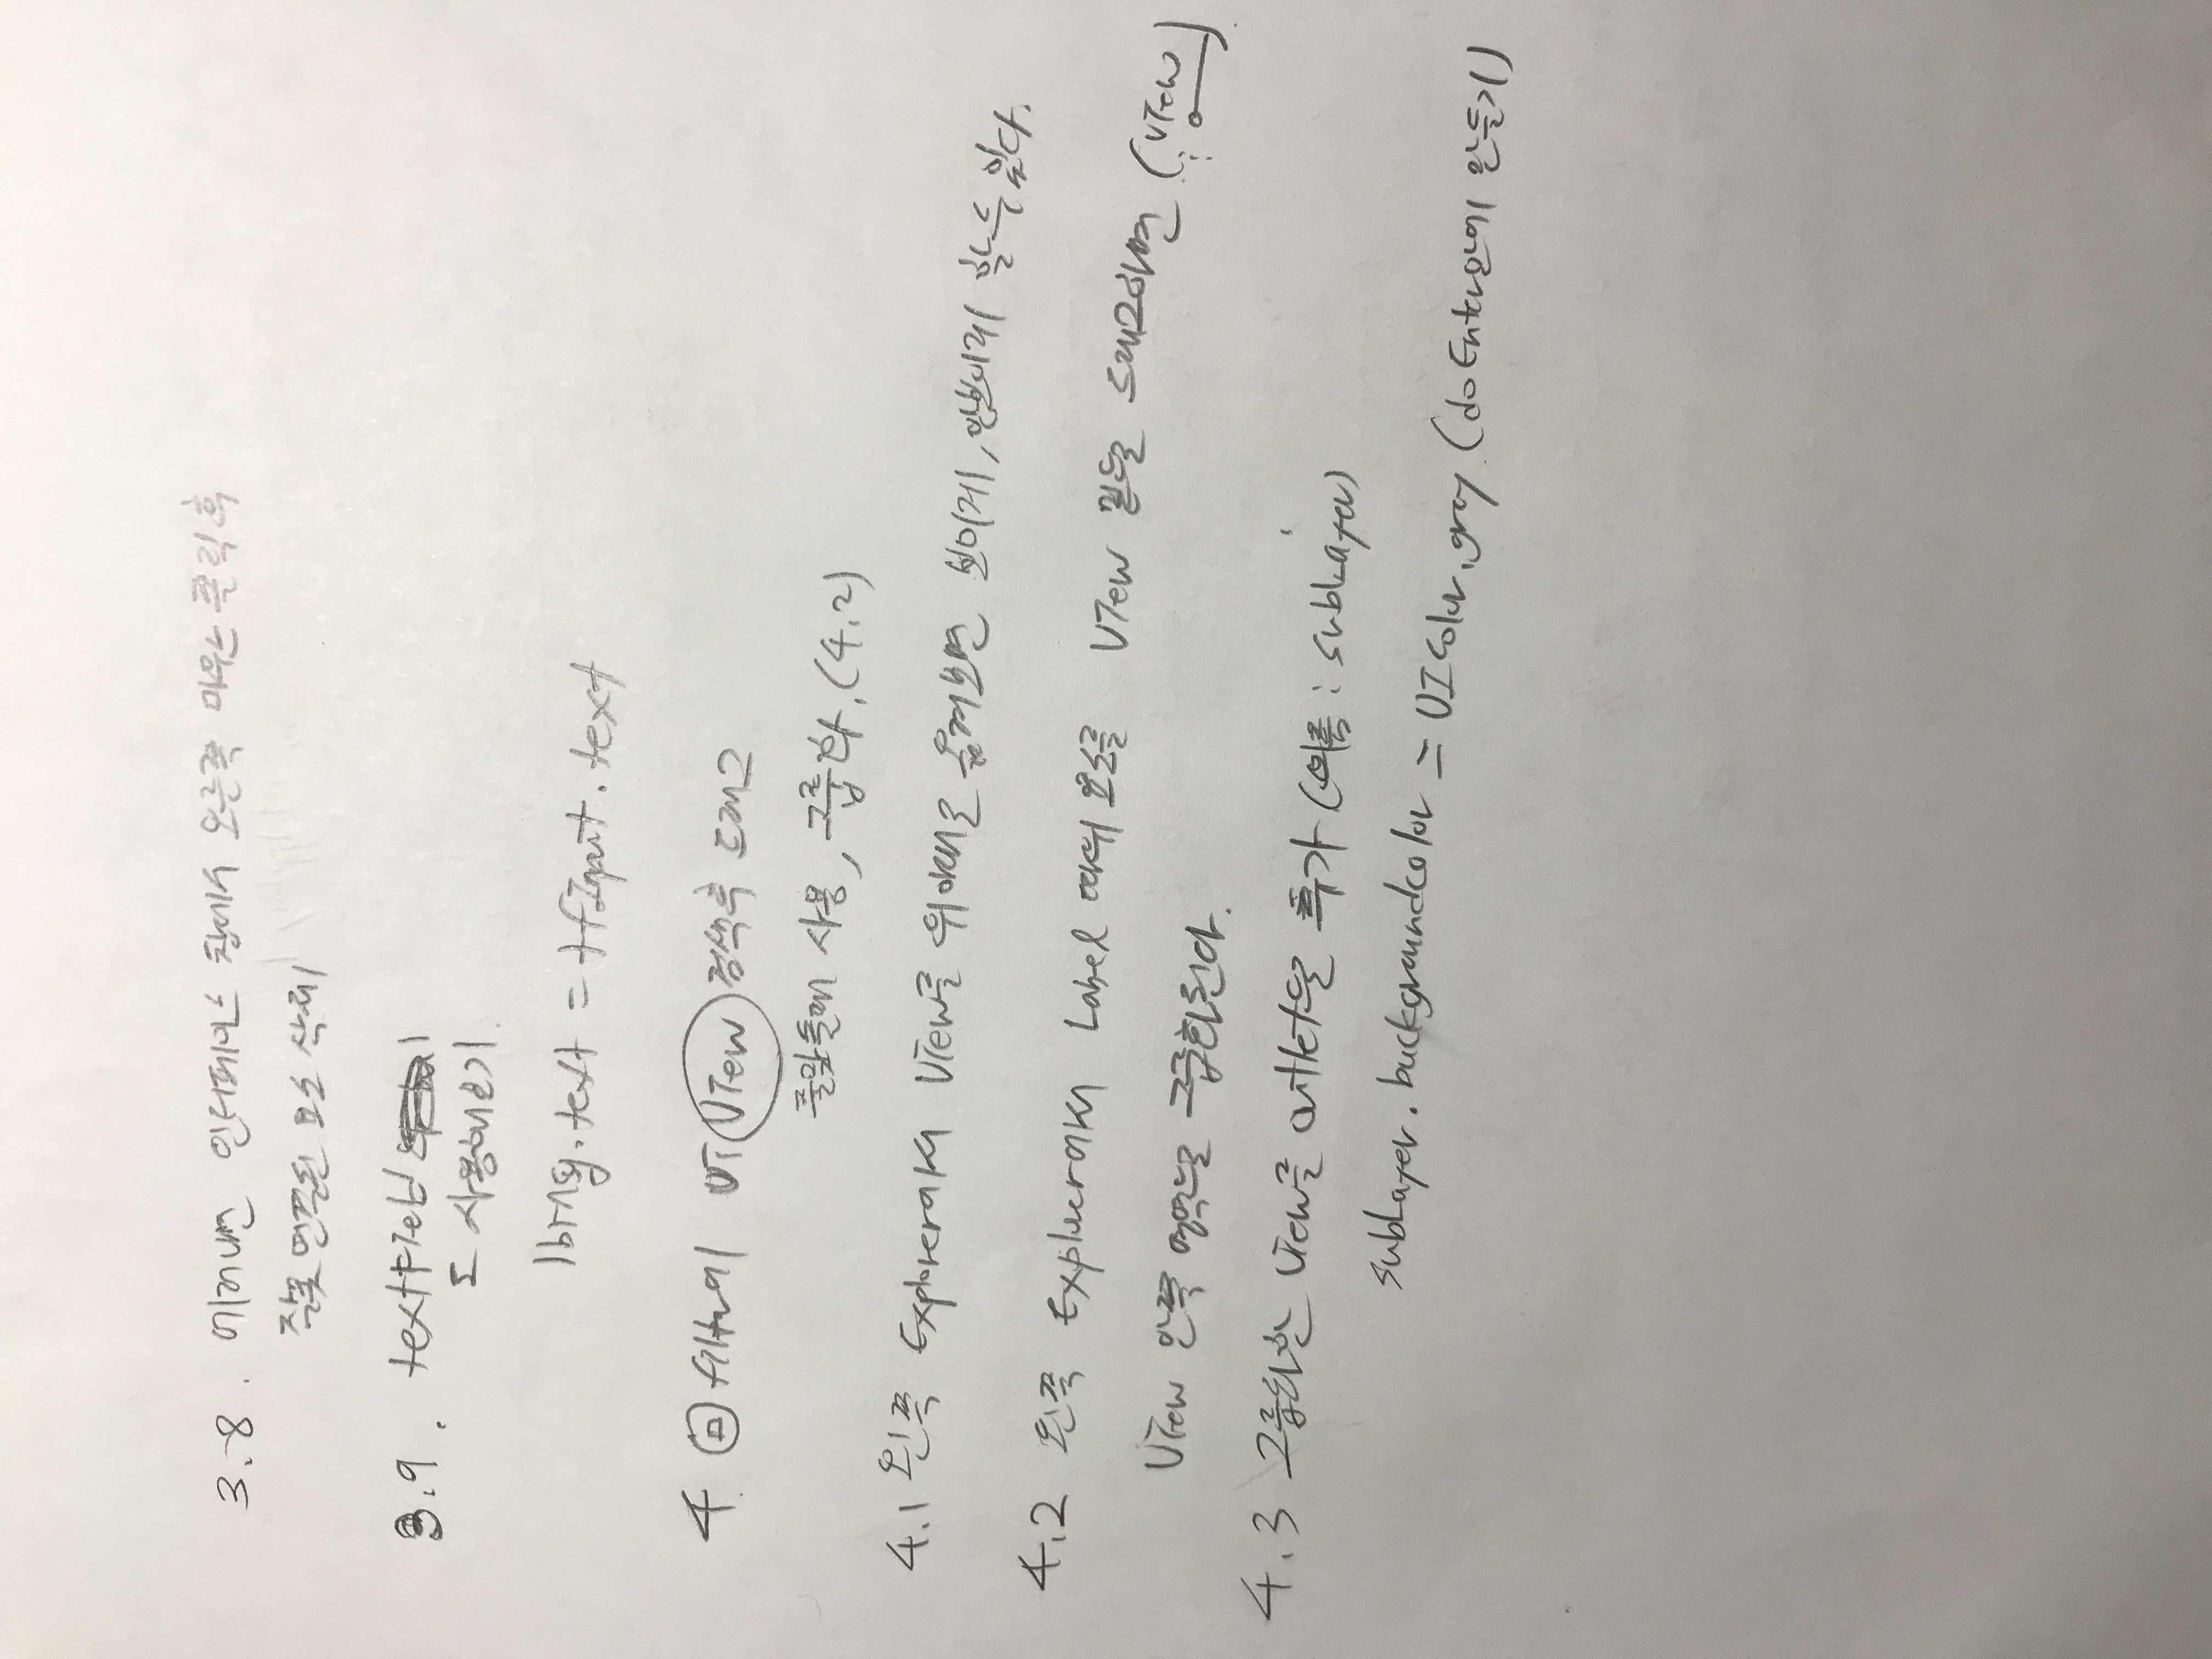 3.8. 에러나면 인터페이스 창에서 오른쪽 마우스 클릭 후
잘못 연결된 요소 삭제
3.9. textField
도 사용해보기.
lbMsg.text = tfInput.text
4. filter에 UIView 검색후 드래그
줄맞출때 사용, 그룹화.(4.2)
4.1 왼쪽 Explorer에서 View를 위아래로 옮겨보면 보이게, 안보이게 할 수 있다.
4.2 왼쪽 Explorer에서 Label 따위 요소를 View 밑으로 드래그하면 (View)
View 안쪽 영역으로 그룹화된다.
4.3 그룹화한 View를 outlet으로 추가 (이름 : subLayer)
subLayer.backgroundcolor = UIColor.gray (doEnter안에 만들기)